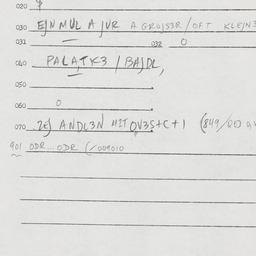 020
030 EJN MUL A JVR A GROJS3R / OFT KLEJN3
031 032 O
040 PALATK3 / BAJDL,
050
060 O
070 2EJ ANDL3N MIT OV3S+C+1 (849/
901 ODR...ODR (/009010